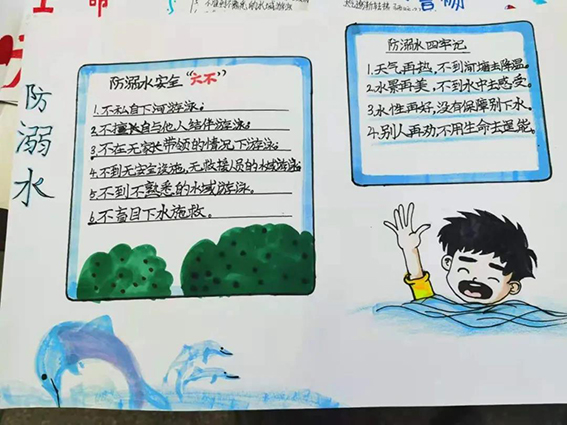 生命
防溺水
防溺水安全“六不”
1.不私自下河游泳。
2.不擅自与他人结伴游泳。
3.不在无家长带领的情况下游泳。
4.不到无安全设施,无救援人员的水域游泳。
5.不到不熟悉的水域游泳。
6.不盲目下水施救。
防溺水四牢记
1.天气再热,不到河塘去降温。
2.水景再美,不到水中去感受。
3.水性再好,没有保障别下水。
4.别人再劝,不用生命去逞能。